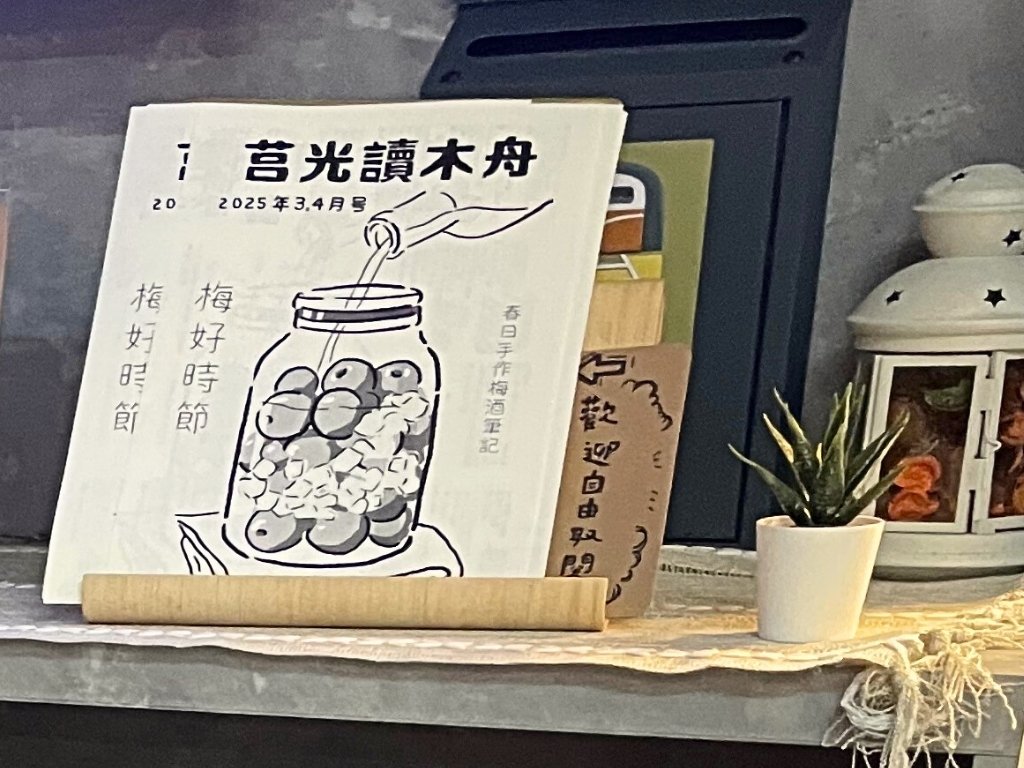 莒光讀木舟
20
2025年3.4月号
梅好時節
梅好時節
春日手作梅酒筆記
歡迎自由取閱